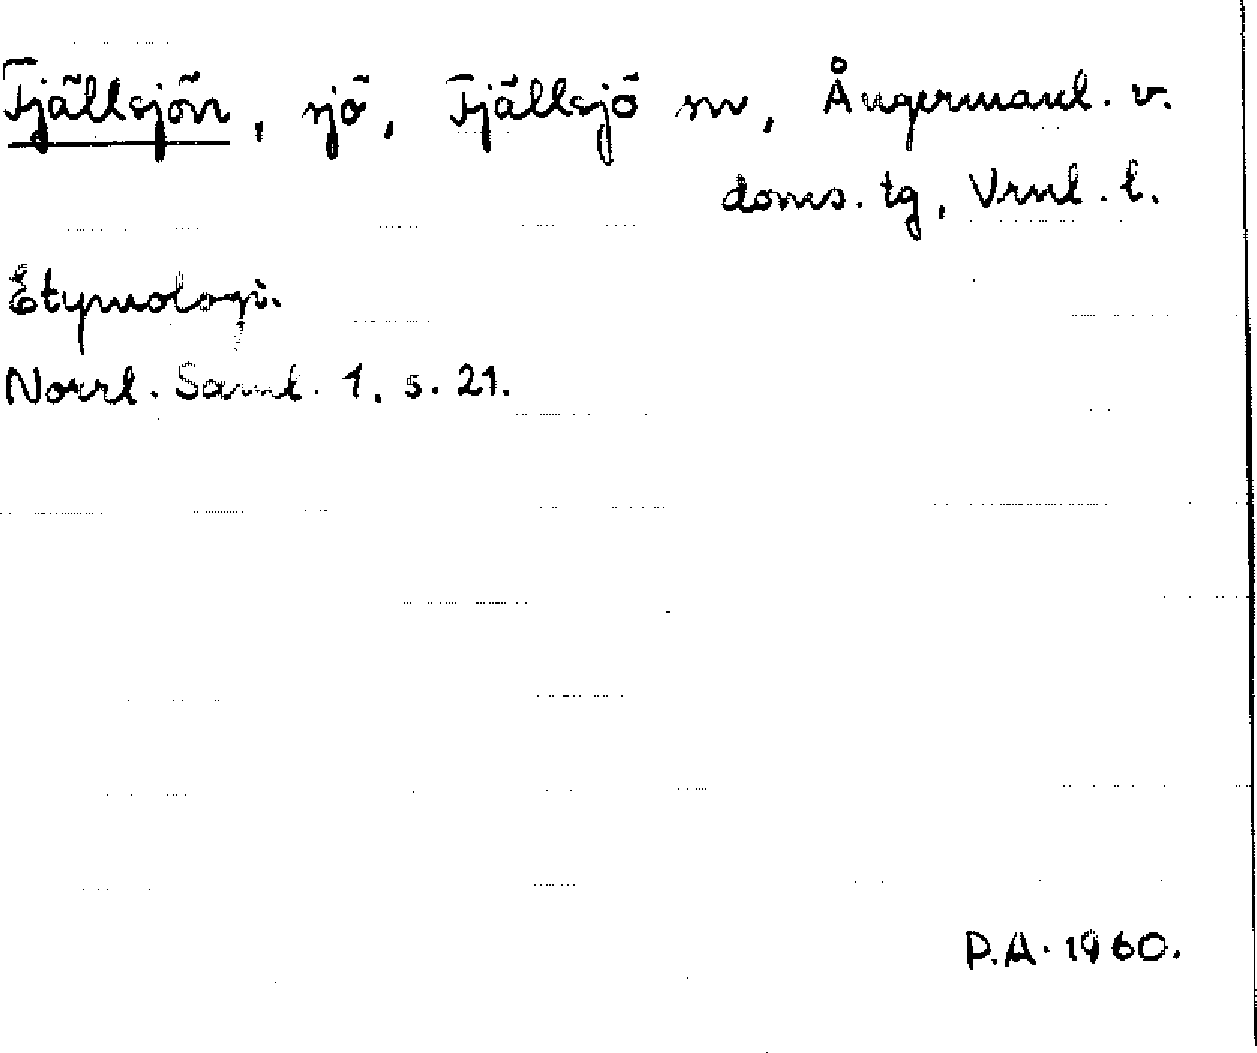 Fjällsjön, sjö, Fjällsjö sn, Ångermanl. v.
doms. tg, Vrnl. l.
Etymologi.
Norrl. Saml. 1, s. 21.
P.A. 1960.